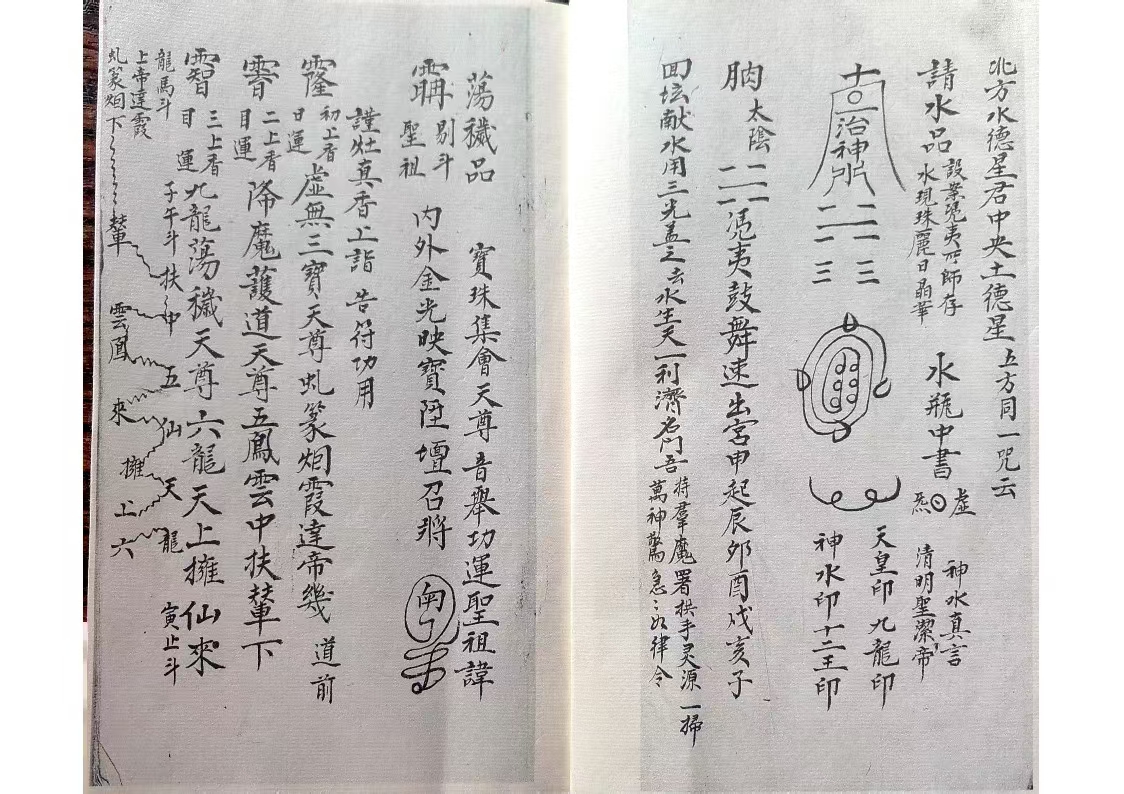 北方水德星君中央土德星 五方同一咒云
請水品 水瓶中書 虛 神水真言
水現珠麗日晶華 清明聖潔帝
十 治神水
二二
一一
三三
天皇印 九龍印
神水印 十二王印
太陰 馮夷鼓舞速出宮申起辰卯酉戌亥子
回坛献水用三光盖之去水生天一利濟名门吾 持羣魔署拱手灵源一掃
萬神驚急〻如律令
蕩穢品 寶珠集會天尊 音舉功運聖祖諱
剔斗
聖祖 内外金光映寶陞壇召將
謹炷真香上詣 告符功用
初上香
日運 虛無三寶天尊虬篆烟霞達帝幾 道前
二上香
目運 降魔護道天尊五鳳雲中扶輦下
三上香
目運 九龍蕩穢天尊六龍天上擁仙來
子午斗 扶中五仙天龍 寅止斗
龍馬斗
上帝達霞
虬篆烟下 輦雲鳳來擁上六